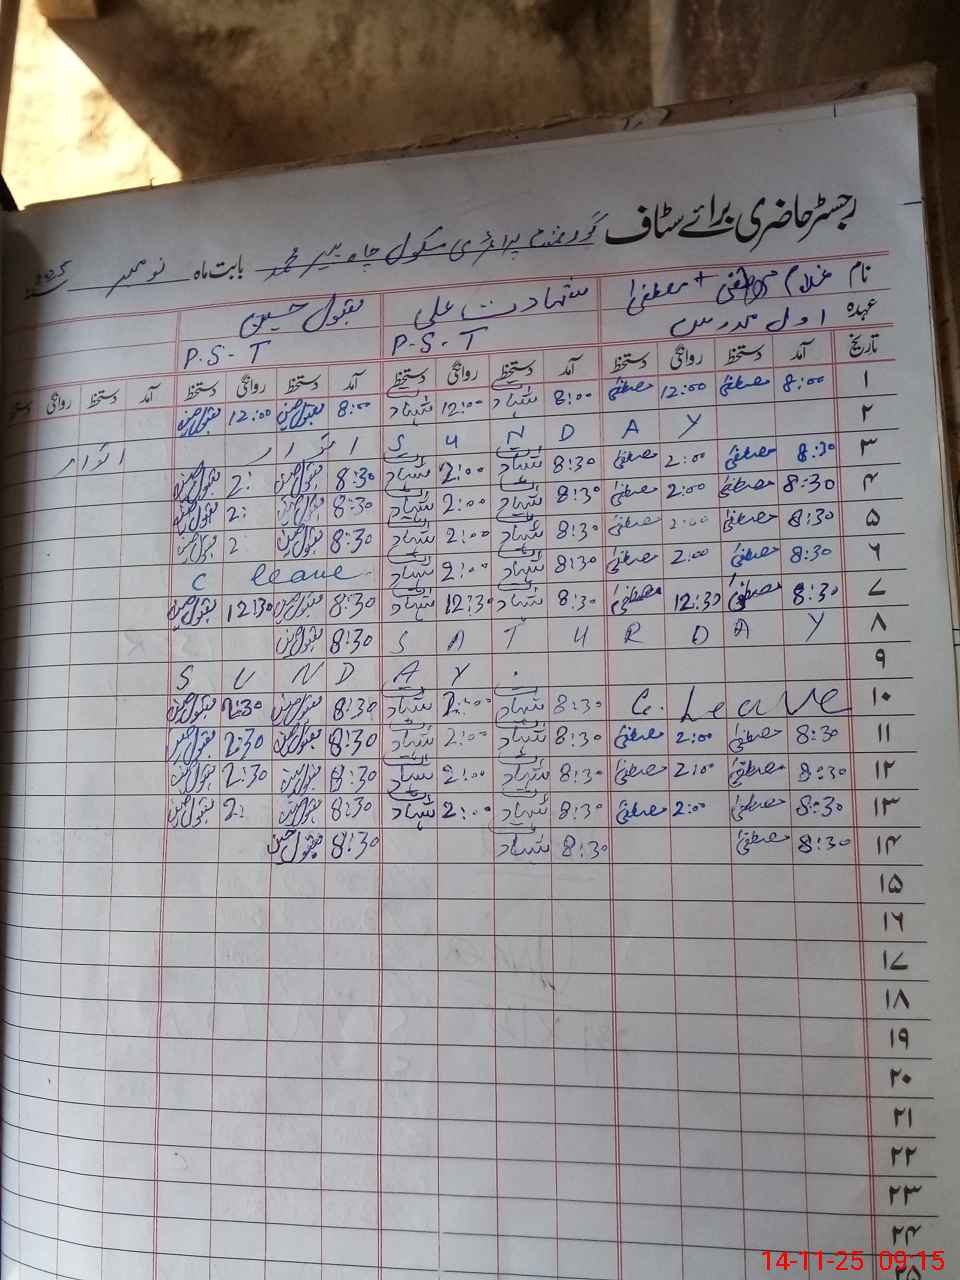 رجسٹر حاضری برائے سٹاف گورنمنٹ پرائمری سکول چاہ پیر محمد بابت ماہ نومبر 2025
نام غلام مصطفیٰ شہادت علی مقبول حسین
عہدہ اول مدرس P.S.T P.S.T
تاریخ آمد دستخط روانگی دستخط آمد دستخط روانگی دستخط آمد دستخط روانگی دستخط آمد دستخط روانگی دستخط
۱ 8:00 مصطفیٰ 12:00 مصطفیٰ 8:00 شہاد 12:00 شہاد 8:00 مقبول حسین 12:00 مقبول حسین
۲ S U N D A Y اتوار اتوار
۳ 8:30 مصطفیٰ 2:00 مصطفیٰ 8:30 شہاد 2:00 شہاد 8:30 مقبول حسین 2: مقبول حسین
۴ 8:30 مصطفیٰ 2:00 مصطفیٰ 8:30 شہاد 2:00 شہاد 8:30 مقبول حسین 2: مقبول حسین
۵ 8:30 مصطفیٰ 2:00 مصطفیٰ 8:30 شہاد 2:00 شہاد 8:30 مقبول حسین 2 مقبول حسین
۶ 8:30 مصطفیٰ 2:00 مصطفیٰ 8:30 شہاد 2:00 شہاد C leave
۷ 8:30 مصطفیٰ 12:30 مصطفیٰ 8:30 شہاد 12:30 شہاد 8:30 مقبول حسین 12:30 مقبول حسین
۸ S A T U R D A Y 8:30 مقبول حسین
۹ S U N D A Y
۱۰ C. Leave 8:30 شہاد 2:00 شہاد 8:30 مقبول حسین 2:30 مقبول حسین
۱۱ 8:30 مصطفیٰ 2:00 مصطفیٰ 8:30 شہاد 2:00 شہاد 8:30 مقبول حسین 2:30 مقبول حسین
۱۲ 8:30 مصطفیٰ 2:00 مصطفیٰ 8:30 شہاد 2:00 شہاد 8:30 مقبول حسین 2:30 مقبول حسین
۱۳ 8:30 مصطفیٰ 2:00 مصطفیٰ 8:30 شہاد 2:00 شہاد 8:30 مقبول حسین 2: مقبول حسین
۱۴ 8:30 مصطفیٰ 8:30 شہاد 8:30 مقبول حسین
۱۵
۱۶
۱۷
۱۸
۱۹
۲۰
۲۱
۲۲
۲۳
۲۴
۲۵
14-11-25 09:15